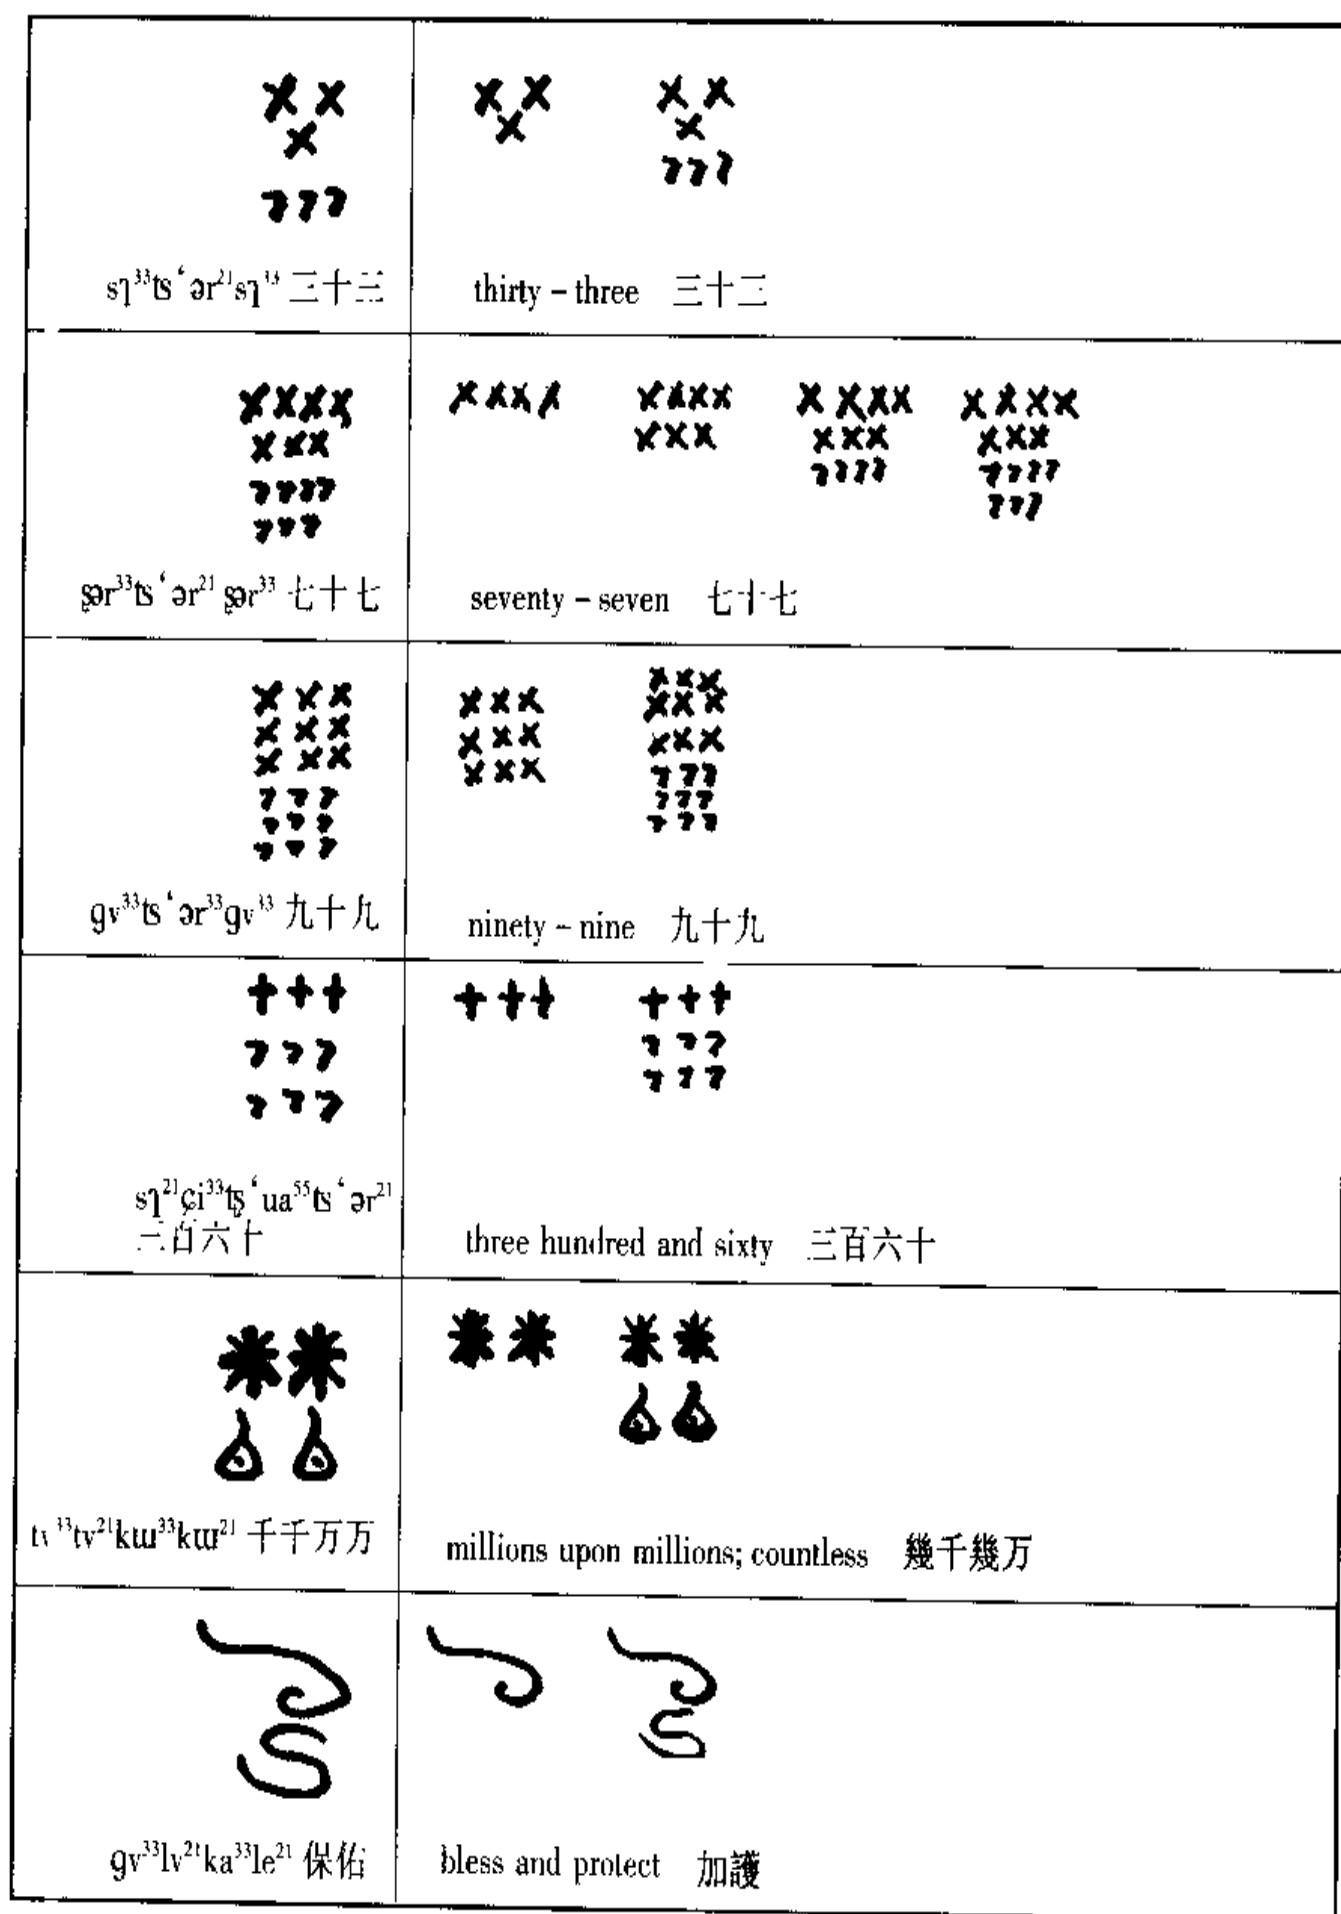 sʅ³³ʦʻər²¹sʅ³³ 三十三
thirty – three 三十三
ʂər³³ʦʻər²¹ ʂər³³ 七十七
seventy – seven 七十七
gv³³ʦʻər³³gv³³ 九十九
ninety – nine 九十九
sʅ²¹çi³³tʂʻua⁵⁵ʦʻər²¹
三百六十
three hundred and sixty 三百六十
tv³³tv²¹kɯ³³kɯ²¹ 千千万万
millions upon millions; countless 幾千幾万
gv³³lv²¹ka³³le²¹ 保佑
bless and protect 加護